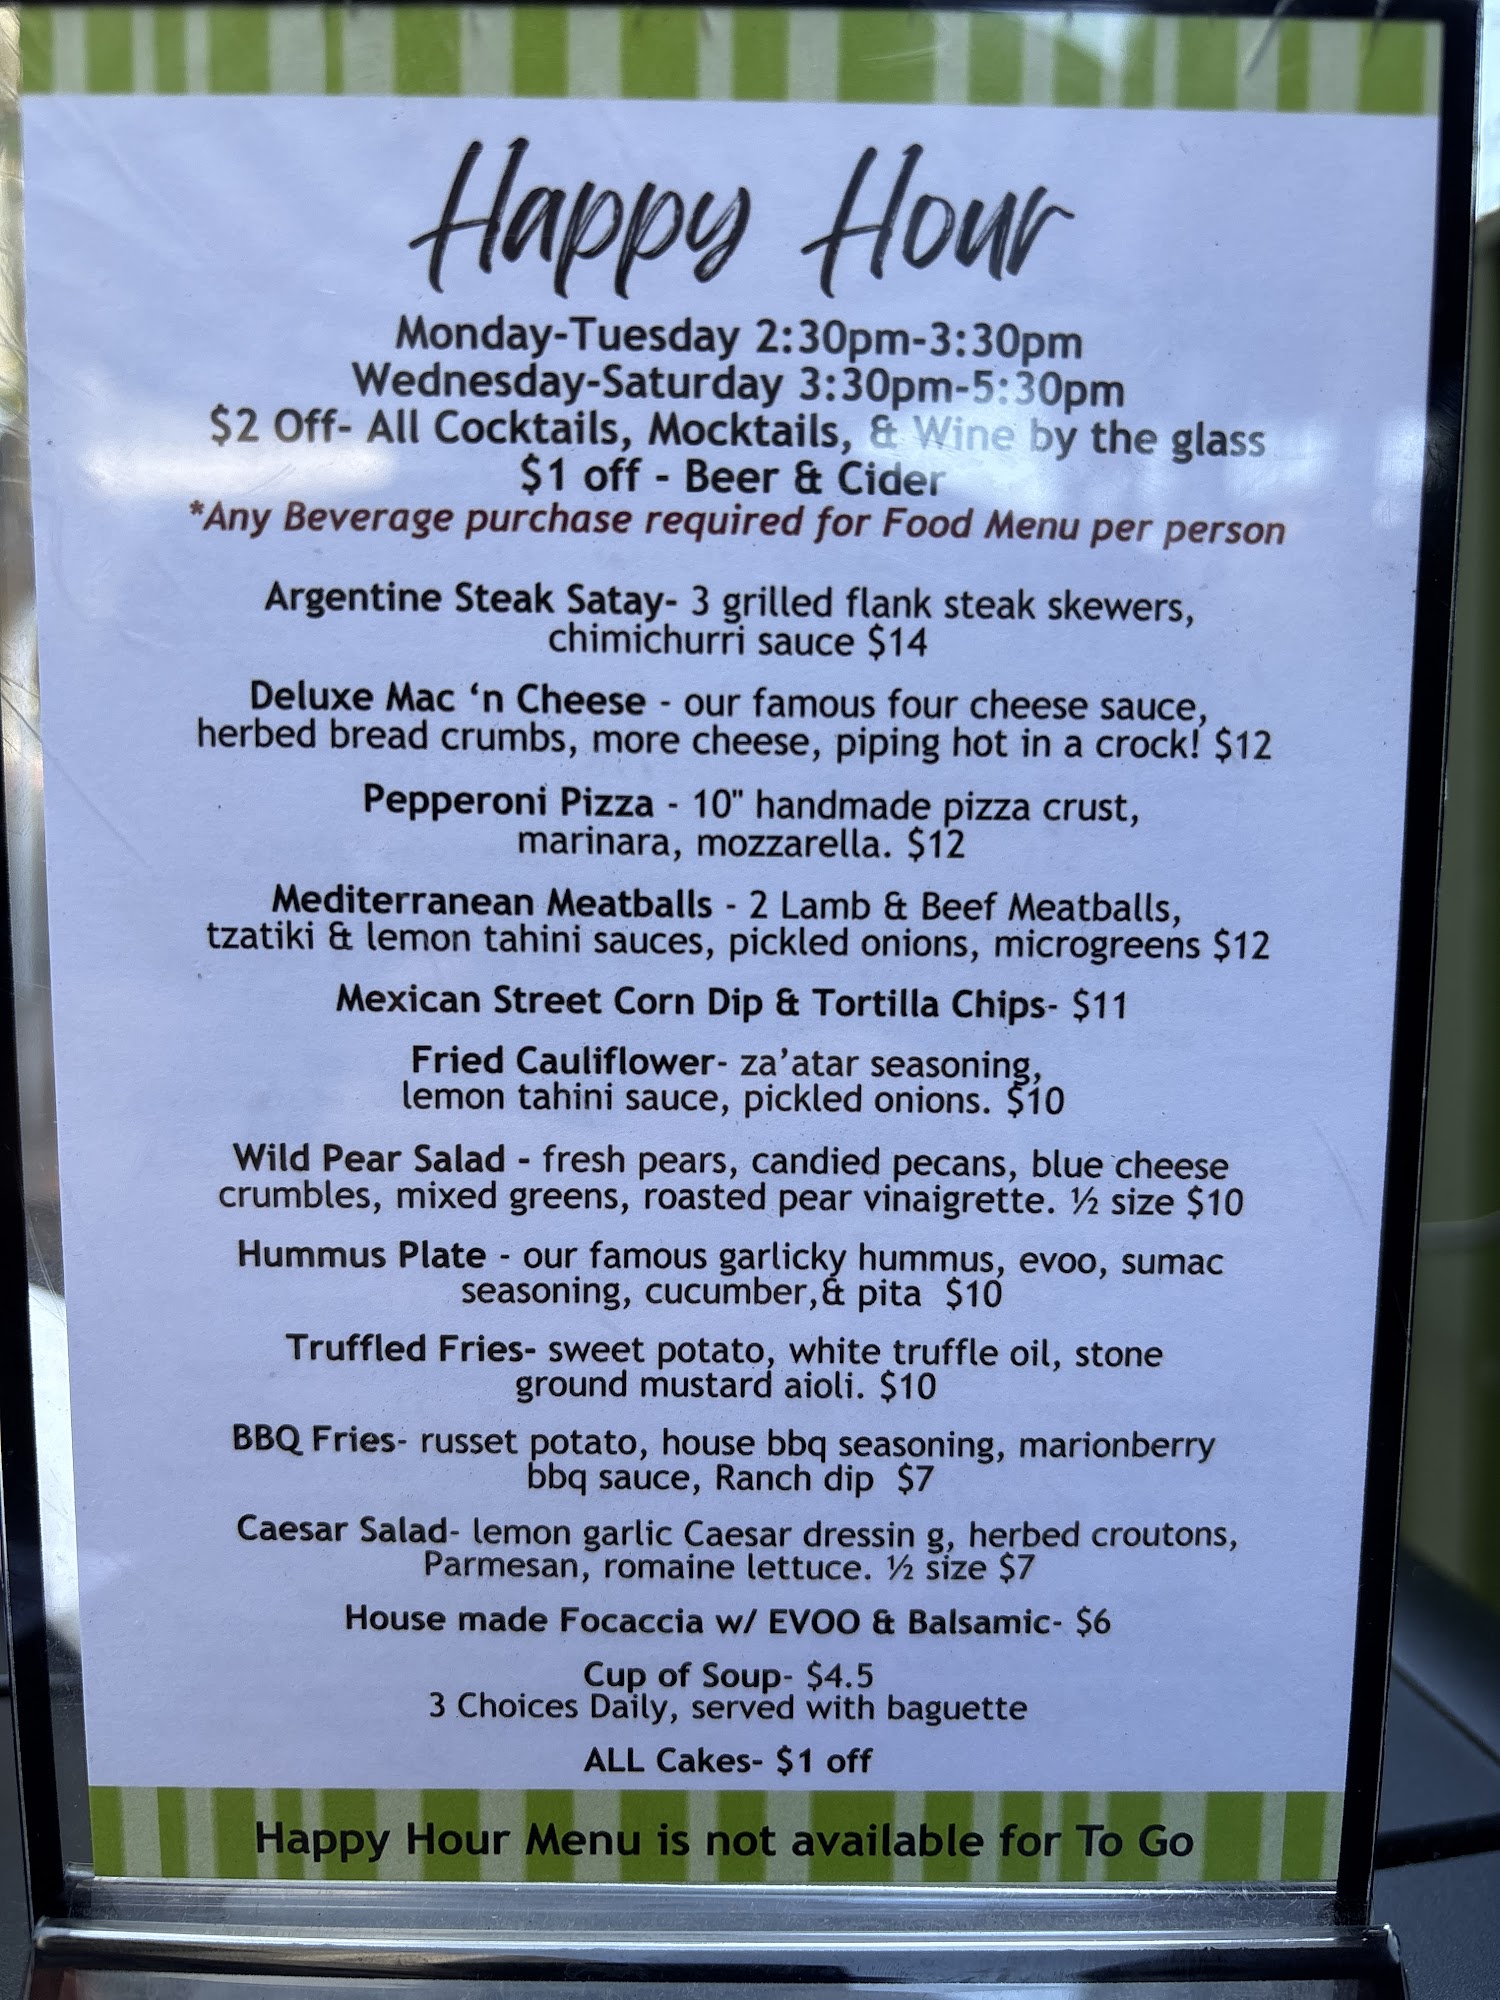 Happy Hour
Monday-Tuesday 2:30pm-3:30pm
Wednesday-Saturday 3:30pm-5:30pm
$2 Off- All Cocktails, Mocktails, & Wine by the glass
$1 off - Beer & Cider
*Any Beverage purchase required for Food Menu per person
Argentine Steak Satay- 3 grilled flank steak skewers,
chimichurri sauce $14
Deluxe Mac ‘n Cheese - our famous four cheese sauce,
herbed bread crumbs, more cheese, piping hot in a crock! $12
Pepperoni Pizza - 10" handmade pizza crust,
marinara, mozzarella. $12
Mediterranean Meatballs - 2 Lamb & Beef Meatballs,
tzatiki & lemon tahini sauces, pickled onions, microgreens $12
Mexican Street Corn Dip & Tortilla Chips- $11
Fried Cauliflower- za’atar seasoning,
lemon tahini sauce, pickled onions. $10
Wild Pear Salad - fresh pears, candied pecans, blue cheese
crumbles, mixed greens, roasted pear vinaigrette. ½ size $10
Hummus Plate - our famous garlicky hummus, evoo, sumac
seasoning, cucumber,& pita  $10
Truffled Fries- sweet potato, white truffle oil, stone
ground mustard aioli. $10
BBQ Fries- russet potato, house bbq seasoning, marionberry
bbq sauce, Ranch dip  $7
Caesar Salad- lemon garlic Caesar dressin g, herbed croutons,
Parmesan, romaine lettuce. ½ size $7
House made Focaccia w/ EVOO & Balsamic- $6
Cup of Soup- $4.5
3 Choices Daily, served with baguette
ALL Cakes- $1 off
Happy Hour Menu is not available for To Go